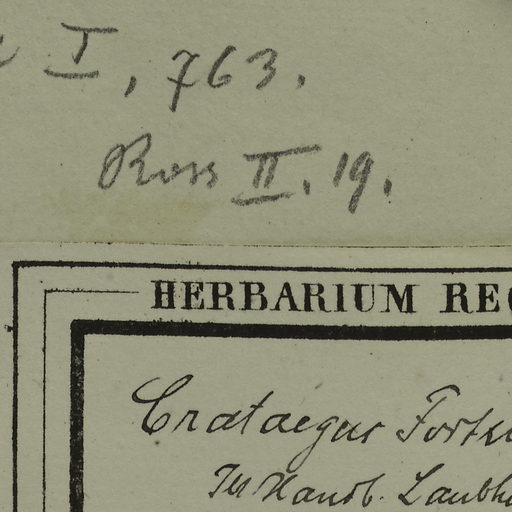 I, 763.
Ross II. 19.
HERBARIUM RE
Crataegus
Handb. Laubh